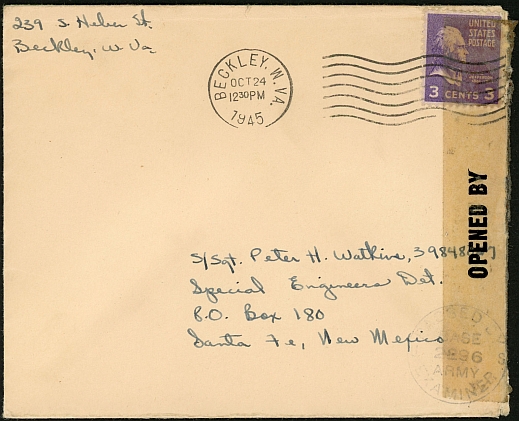 239 S. Heber St.
Beckley, W. Va
BECKLEY, W. VA.
OCT 24
12 30 PM
1945
UNITED
STATES
POSTAGE
3 CENTS 3
OPENED BY
S/Sgt. Peter H. Watkins,
Special Engineers Det.
P.O. Box 180
Santa Fe, New Mexico
BASE
ARMY
EXAMINER